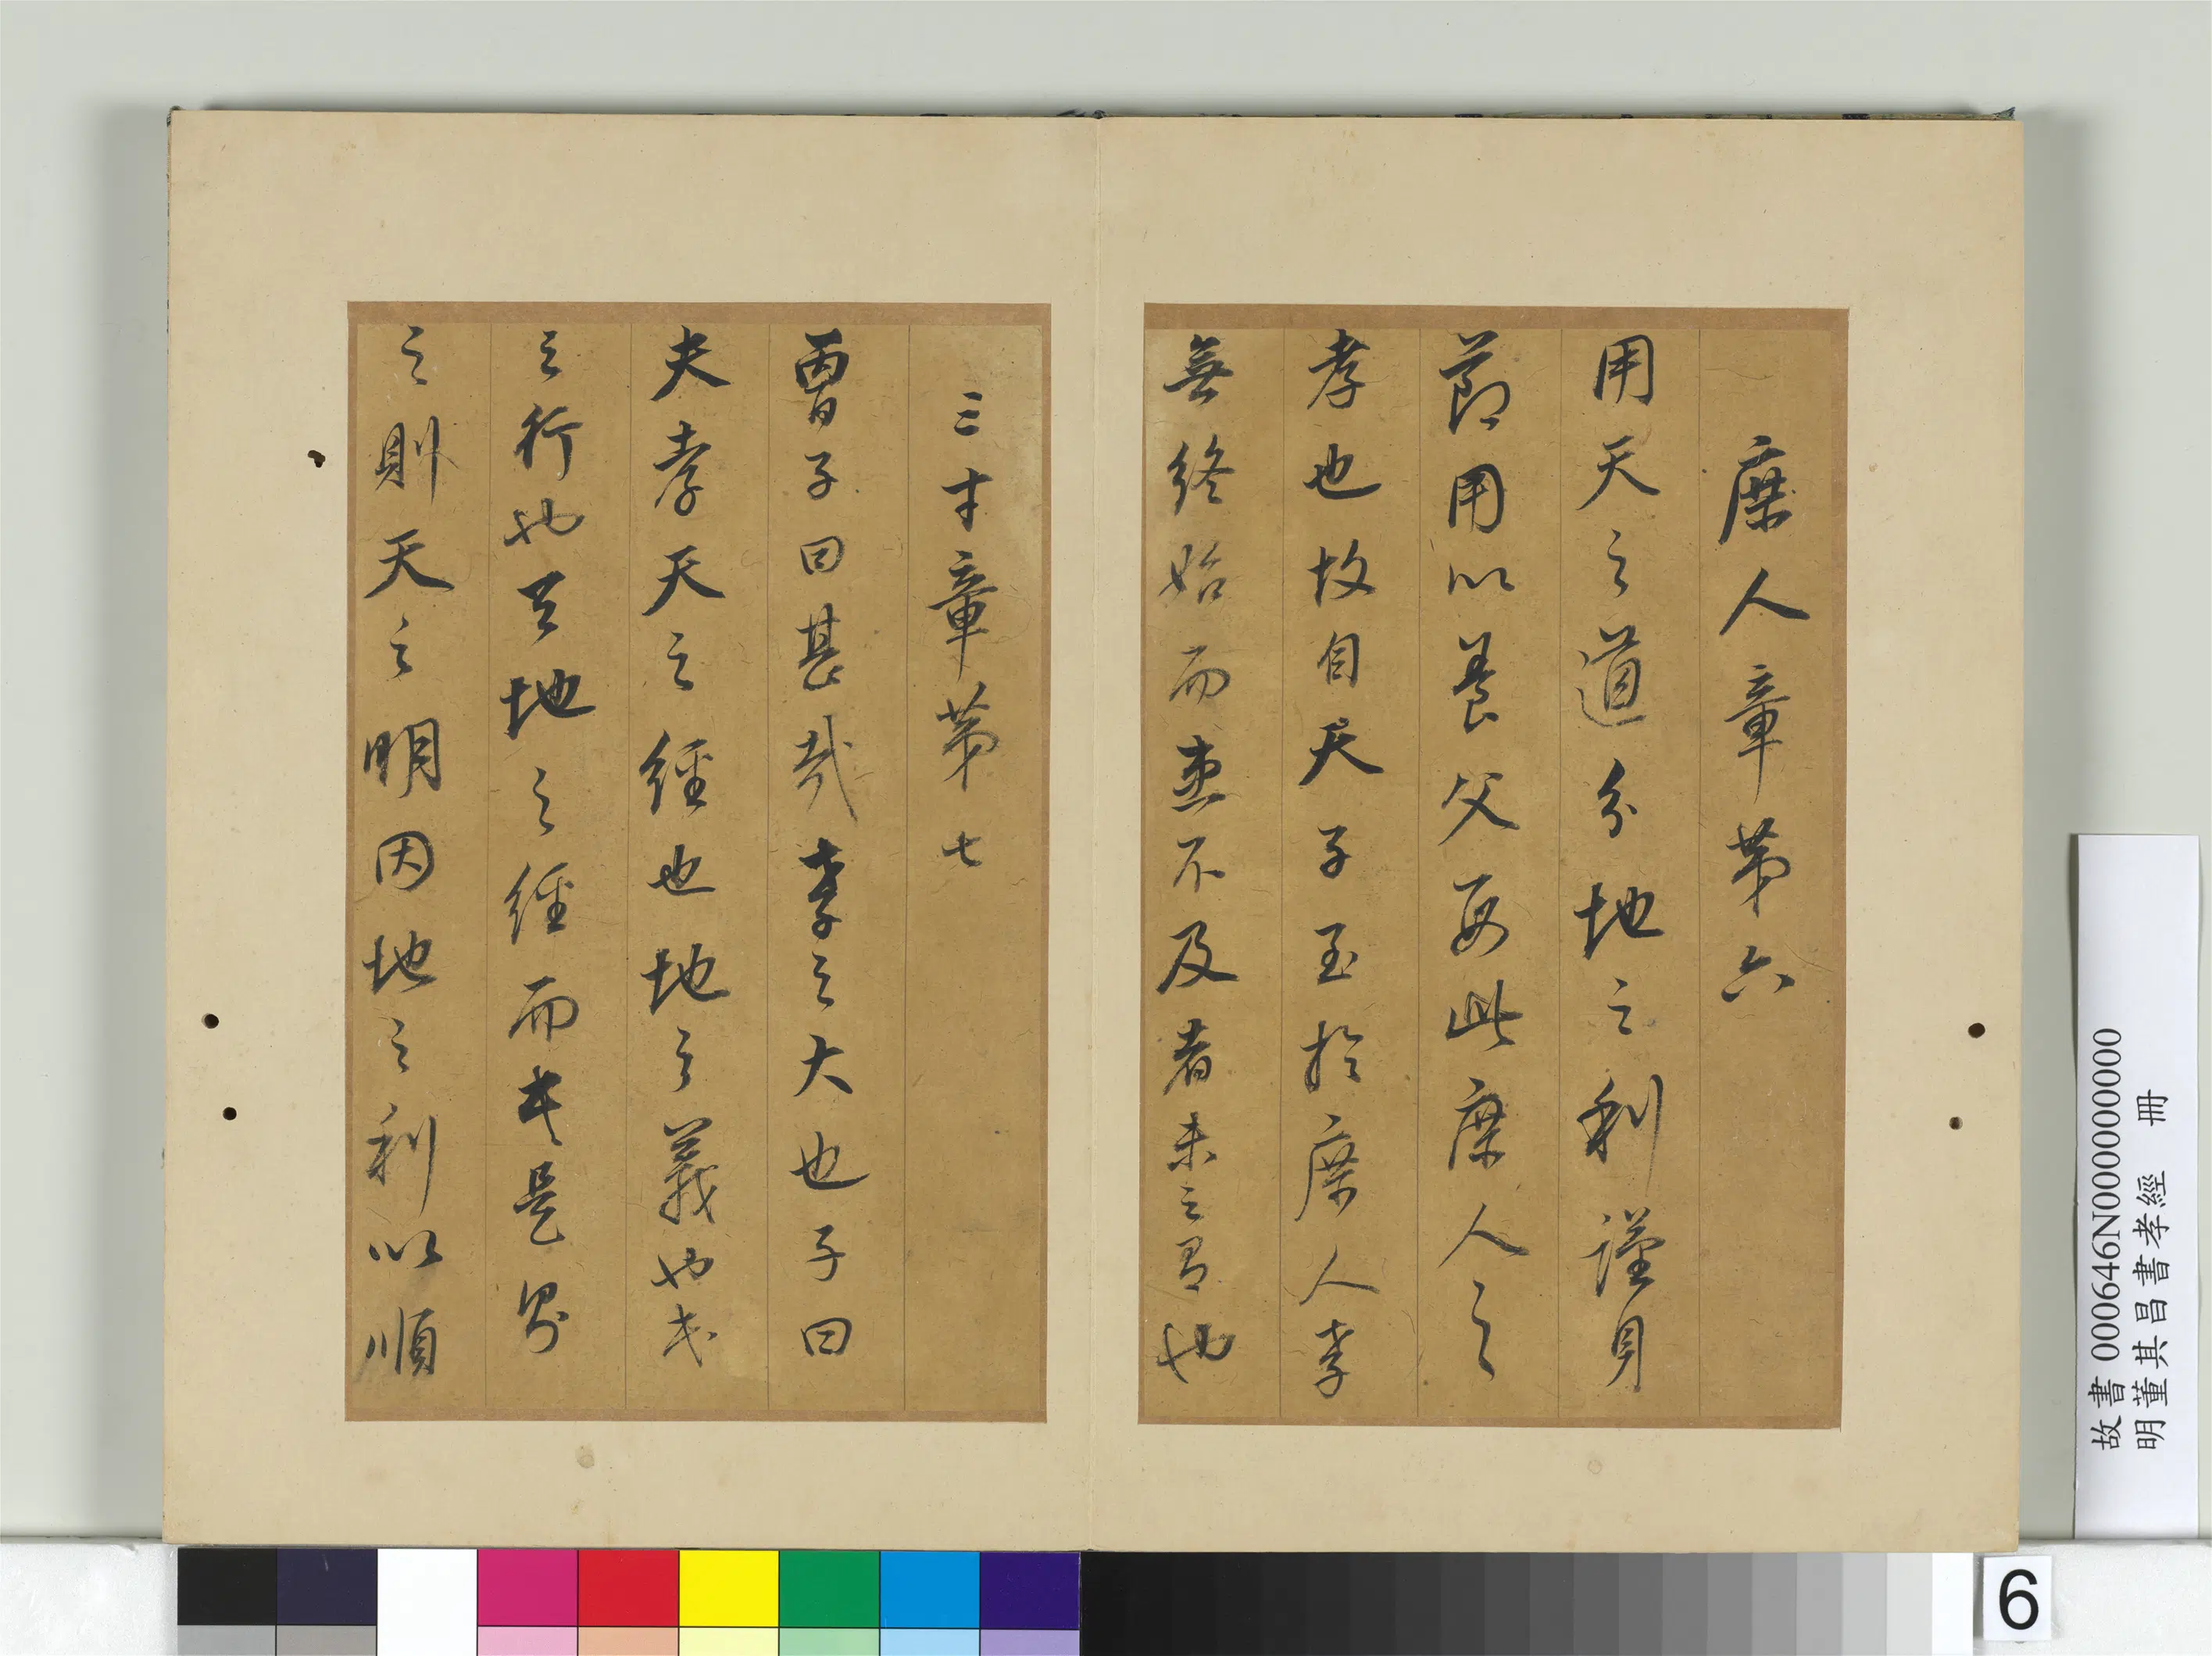 庶人章第六
用天之道分地之利謹身
節用以養父母此庶人之
孝也故自天子至於庶人孝
無終始而患不及者未之有也
三才章第七
曾子曰甚哉孝之大也子曰
夫孝天之經也地之義也民
之行也天地之經而民是則
之則天之明因地之利以順
故書 000646N000000000
明董其昌書孝經 冊
6